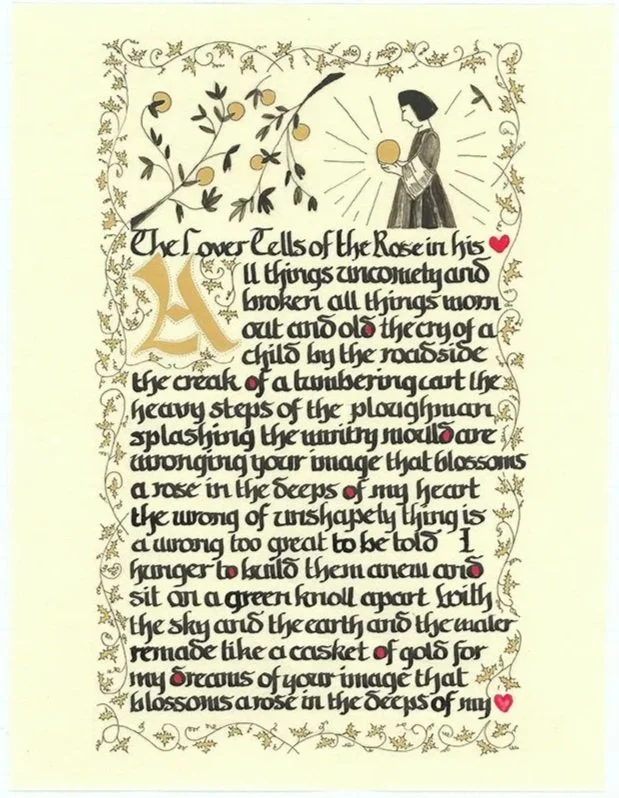 The Lover Tells of the Rose in his
All things uncomely and
broken all things worn
out and old the cry of a
child by the roadside
the creak of a lumbering cart the
heavy steps of the ploughman
splashing the wintry mould are
wronging your image that blossoms
a rose in the deeps of my heart
the wrong of unshapely thing is
a wrong too great to be told I
hunger to build them anew and
sit on a green knoll apart With
the sky and the earth and the water
remade like a casket of gold for
my dreams of your image that
blossoms a rose in the deeps of my